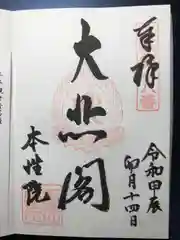 奉拝
大悲閣
本性院
令和甲辰
卯月十四日